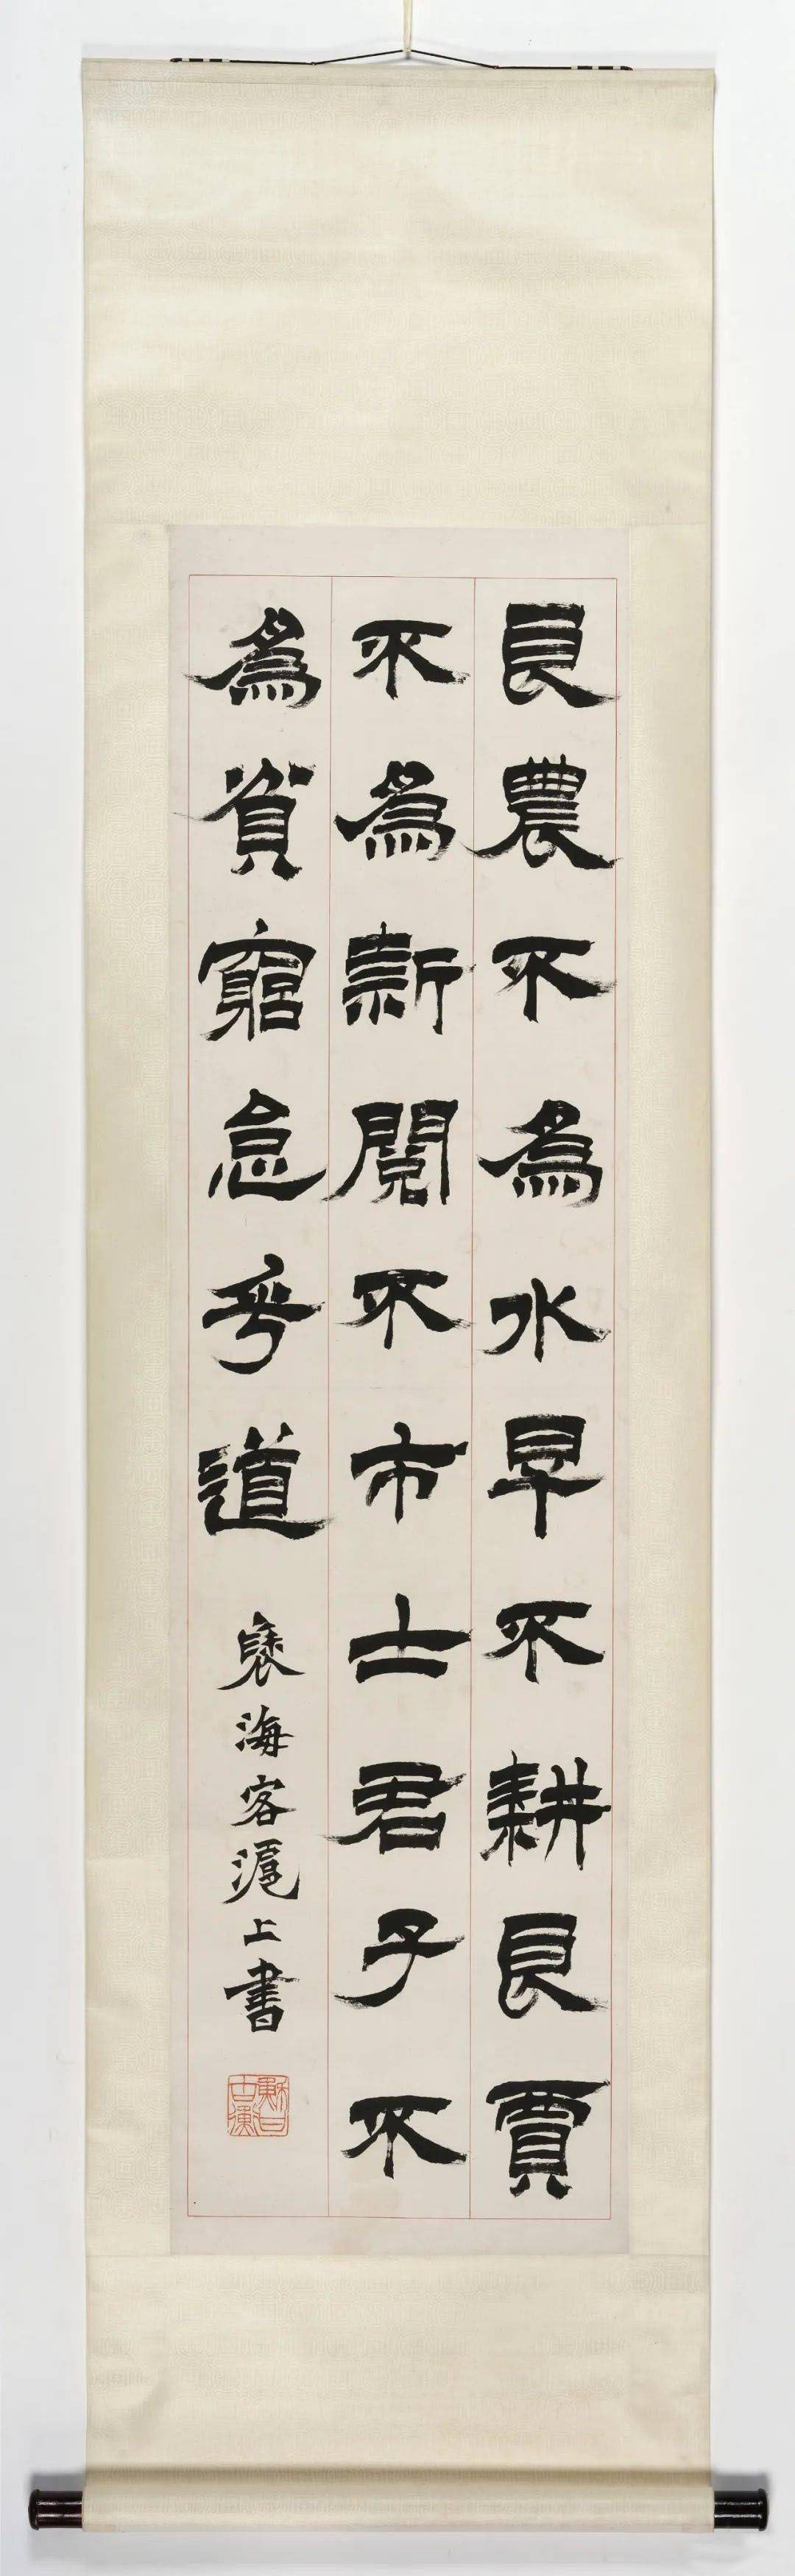 良農不為水旱不耕良賈
不為新閱不市士君子不
為貧窮怠乎道
海客滬上書